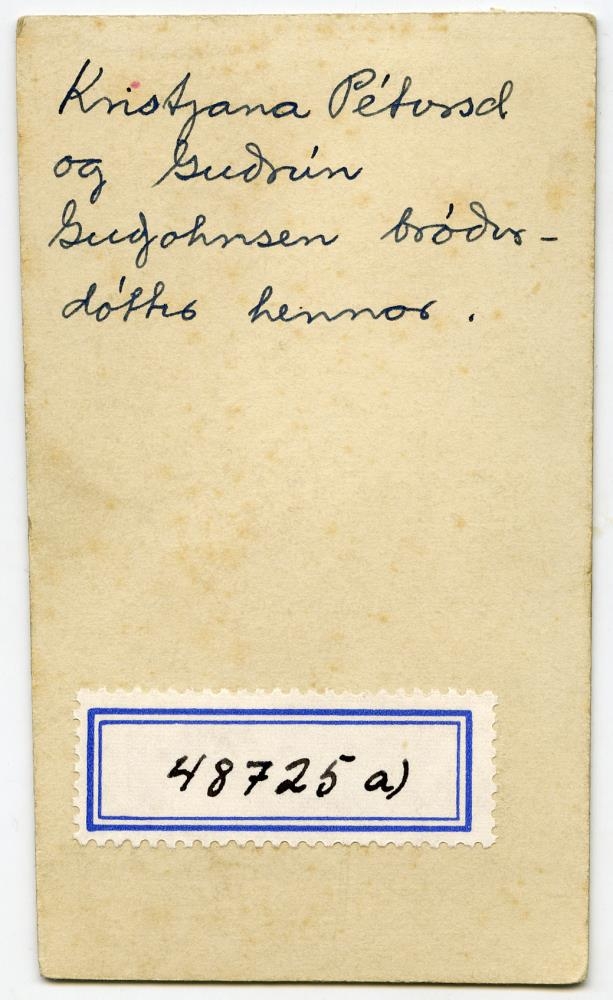 Kristjana Pétursd
og Guðrún
Guðjohnsen bróður-
dóttir hennar.
48725 a)